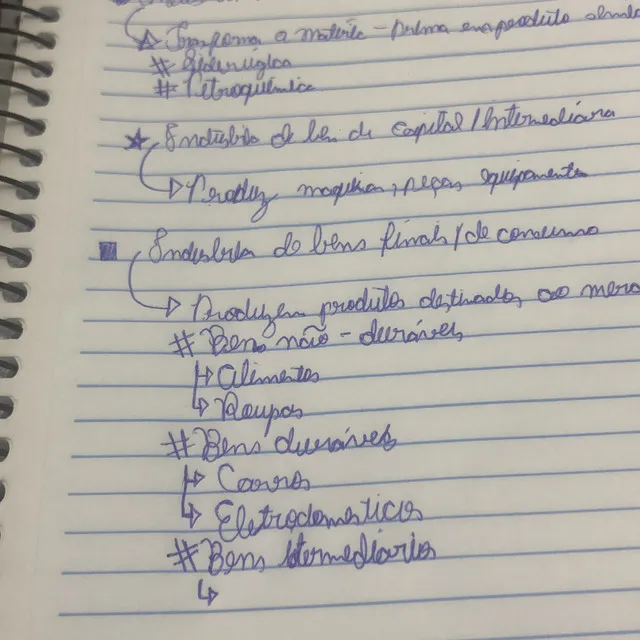 Transforma a matéria-prima em produto
# Siderúrgica
# Petroquímica
Indústria de ben de capital/Intermediária
Produz maquina, peças equipamentos
Indústria de bens finais/de consumo
Produzem produtos destinados ao merca
# Bens não-duráveis
Alimentos
Roupas
# Bens duráveis
Carros
Eletrodomésticos
# Bens Itermediários